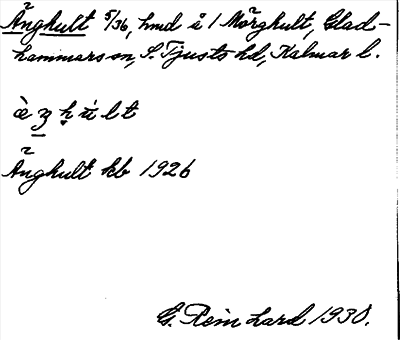 Ängkult 5/36, hmd å 1 Mörghult, Glad-
hammars sn, S. Tjusts hd, Kalmar l.
Änghult kb 1926
G. Reinhard 1930.